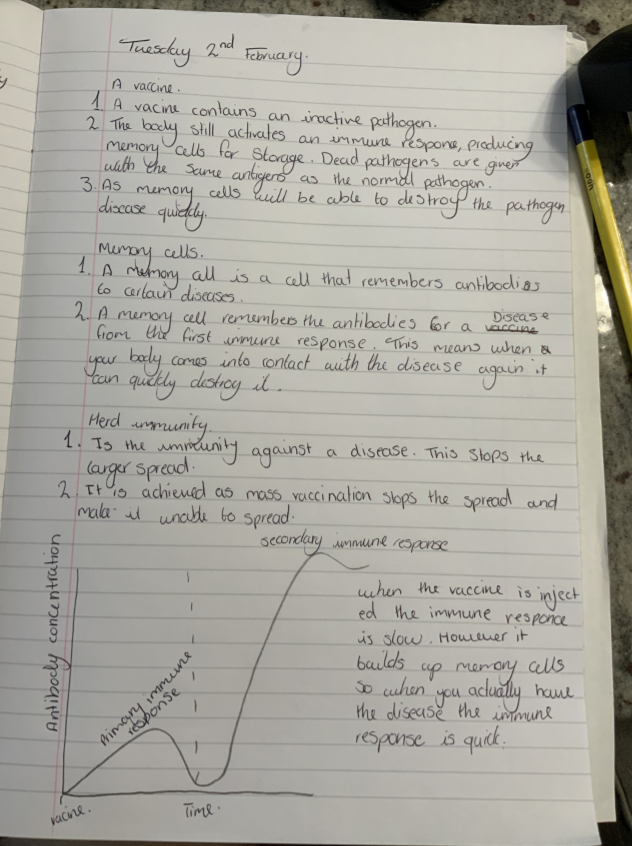 Tuesday 2nd February.
A vaccine.
1. A vacine contains an inactive pathogen.
2 The body still activates an immune respone, producing
memory cells for storage. Dead pathogens are given
with the same antigens as the normal pathogen.
3. As memory cells will be able to destroy the pathogen
disease quickly.
Memory cells.
1. A memory cell is a cell that remembers antibodies
to certain diseases.
2. A memory cell remembers the antibodies for a vaccine Disease
from the first immune response. This means when
your body comes into contact with the disease again it
can quickly destroy it.
Herd immunity.
1. Is the immunity against a disease. This stops the
larger spread.
2 It is achieved as mass vaccination stops the spread and
make it unable to spread.
secondary immune response
Antibody concentration
Primary immune
response
vacine.
Time.
when the vaccine is inject
ed the immune responce
is slow. However it
builds up memory cells
so when you actually have
the disease the immune
response is quick.